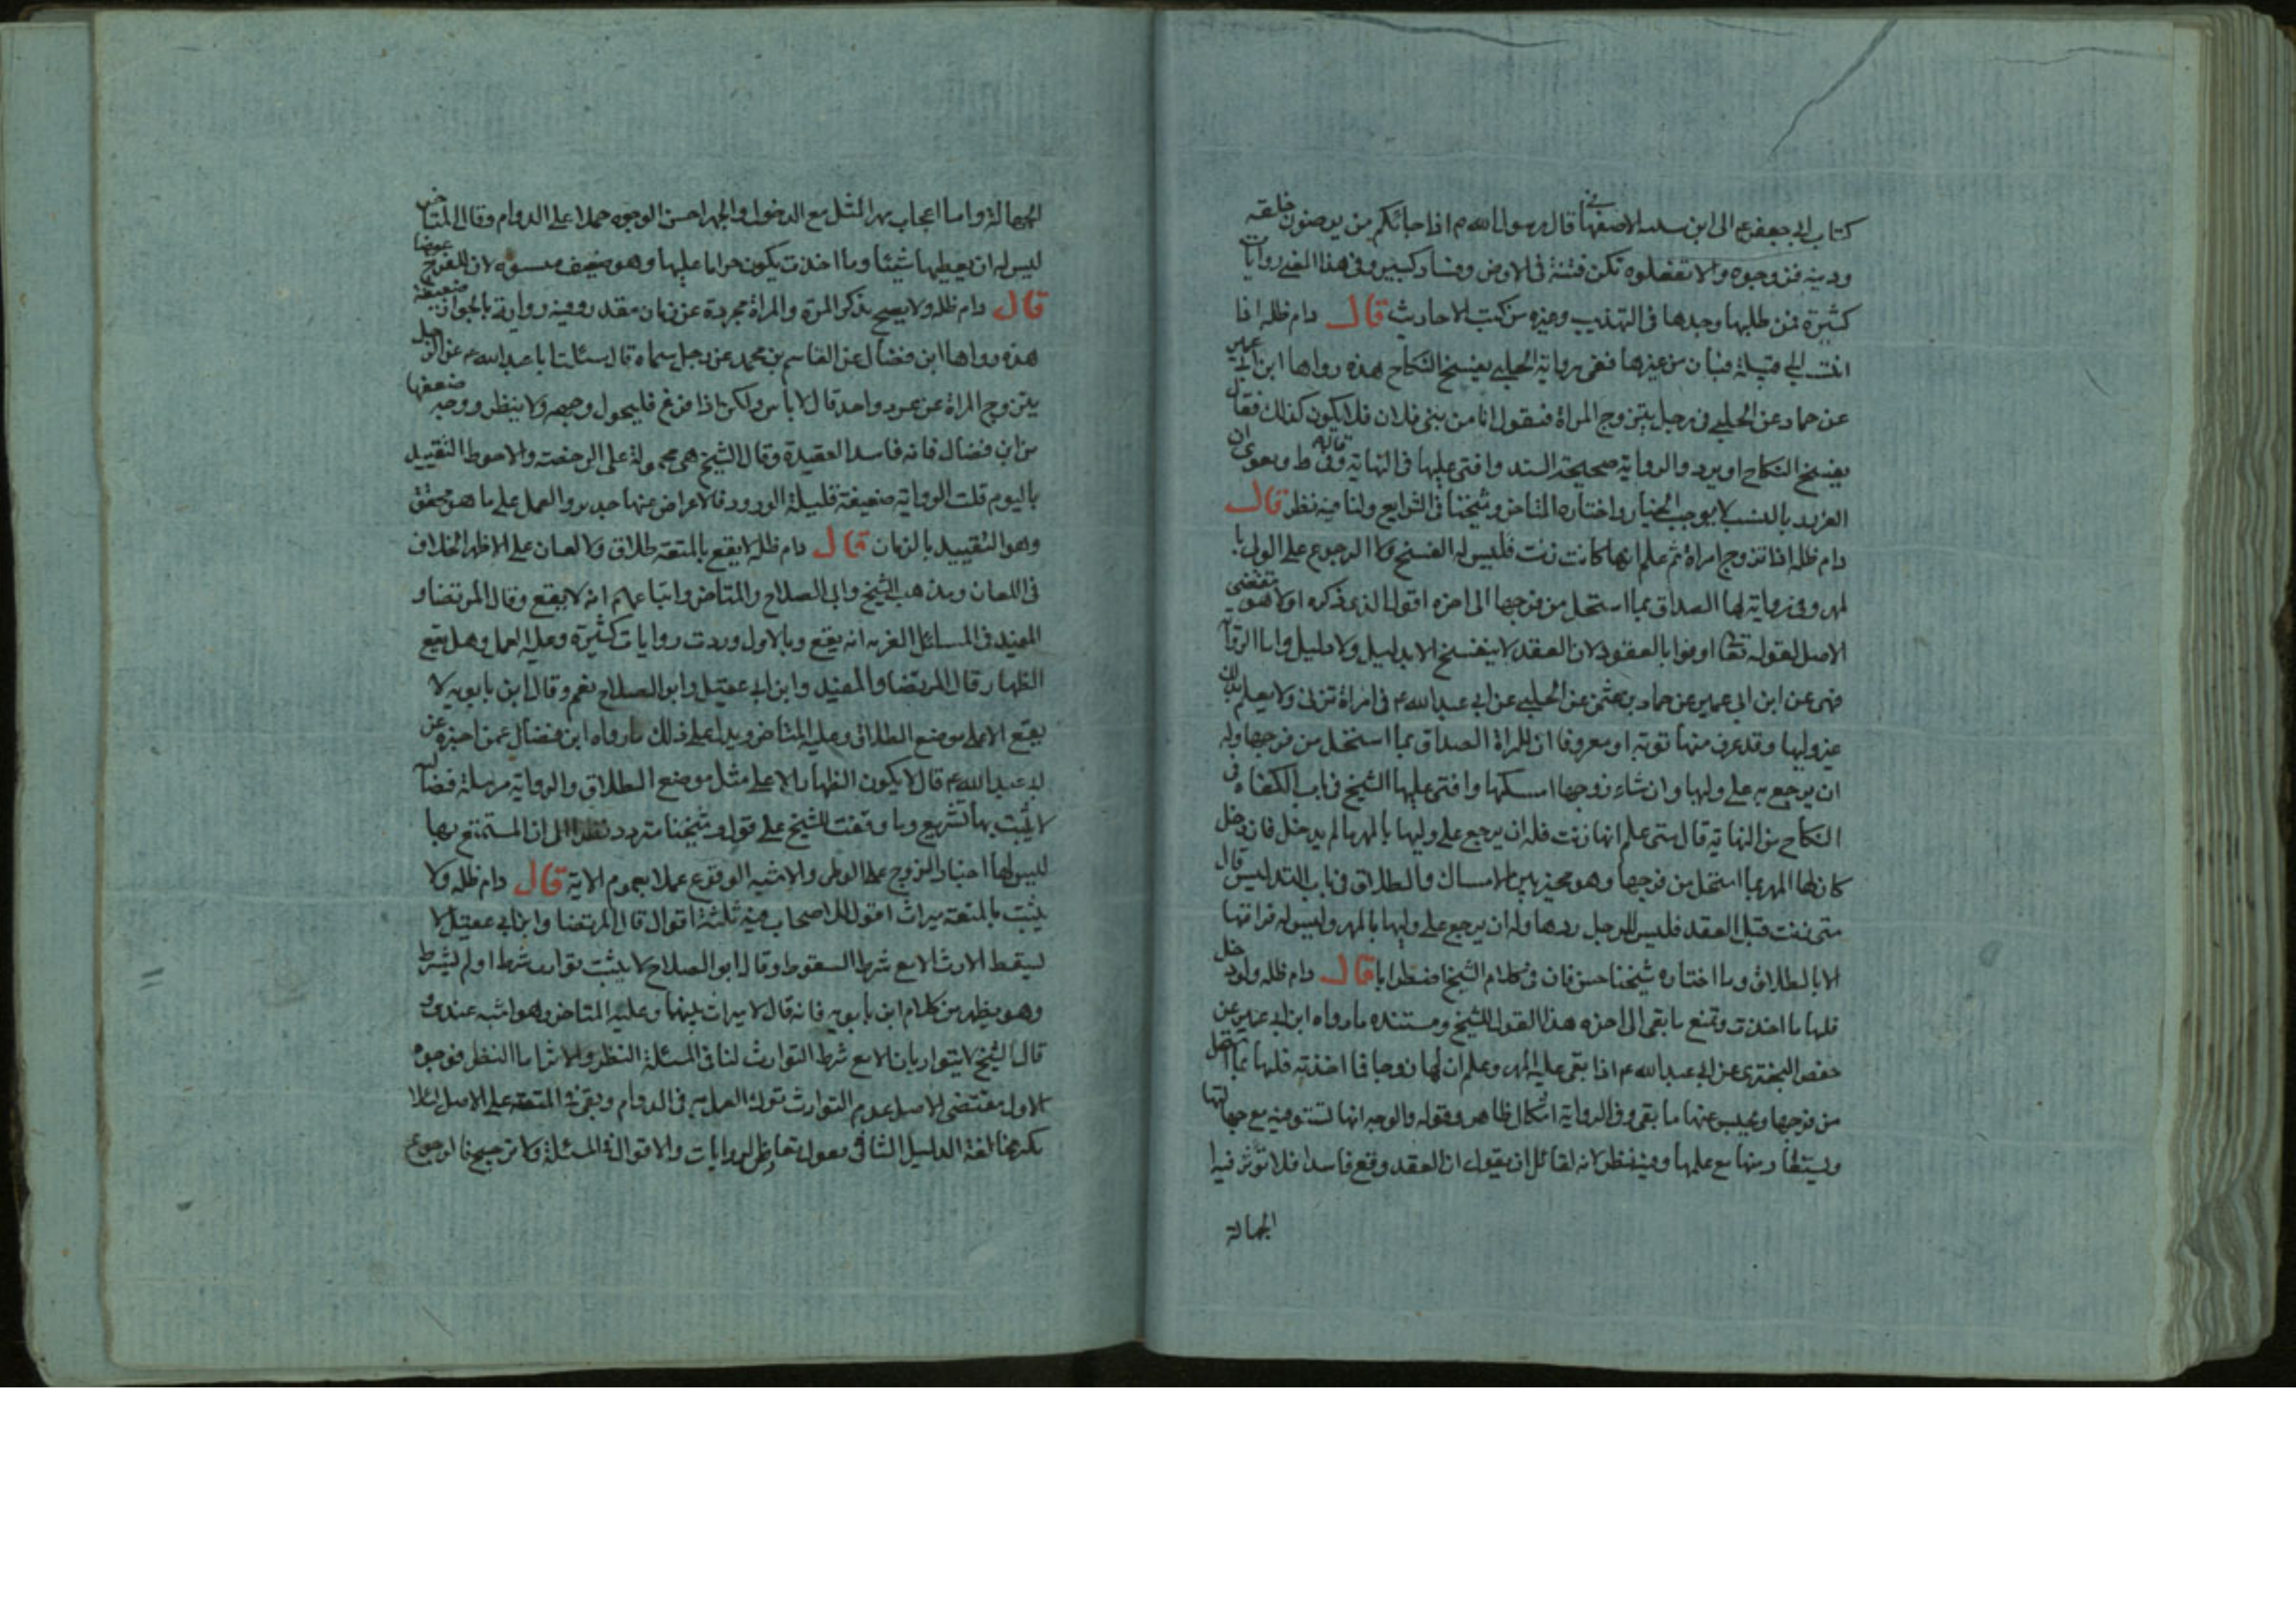 كتاب ابى جعفر ع الى ابن سند الاصفهانى قال رسول الله م اذا جائكم من ترضون خلقه
ودينه فزوجوه والا تفعلوه تكن فتنة فى الارض وفساد كبير وفى هذا المعنى روايات
كثيرة فمن طلبها وجدها فى التهذيب وغيره من كتب الاحاديث قال دام ظله اذا
انتسب الى قبيلة فبان من غيرها ففى رواية الحلبى يفسخ النكاح هذه رواها ابن ابى عمير
عن حماد عن الحلبى فى رجل يتزوج المراة فيقول انا من بنى فلان فلا يكون كذلك فقال
يفسخ النكاح او يرد والرواية صحيحة السند وافتى عليها فى النهاية وقال فى ط وبعوى ان
الغرور بالنسب لا يوجب الخيار واختاره المتاخر وشيخنا فى الشرايع ولنا فيه نظر قال
دام ظله اذا تزوج امراة ثم علم انها كانت زنت فليس له الفسخ ولا الرجوع على الولى با
لمهر وفى رواية لها الصداق بما استحل من فرجها الى اخره اقول الذى ذكره اولا هو مقتضى
الاصل لقوله تعا اوفوا بالعقود لان العقد لا ينفسخ الا بدليل ولا دليل واما الرواية
فهى عن ابن ابى عمير عن حماد بن عثمن عن الحلبى عن ابى عبد الله م فى امراة تزنى ولا يعلم بذلك
غير وليها وقد عرف منها توبة او معروفا ان للمراة الصداق بما استحل من فرجها وله
ان يرجع به على وليها وان شاء زوجها امسكها وافتى عليها الشيخ فى باب الكفاءة فى
النكاح من النهاية قال متى علم انها زنت فله ان يرجع على وليها بالمهر ما لم يدخل فان دخل
كان لها المهر بما استحل من فرجها وهو مخير بين الامساك والطلاق فى باب التدليس قال
متى زنت قبل العقد فليس للرجل ردها وله ان يرجع على وليها بالمهر وليس له فراقها
الا بالطلاق وما اختاره شيخنا حسن فان فى كلام الشيخ اضطرابا قال دام ظله ولو دخل
فلها ما اخذت وتمنع ما بقى الى اخره هذا القول للشيخ ومستنده ما رواه ابن ابى عمير عن
حفص البخترى عن ابى عبد الله م اذا بقى عليه المهر وعلم ان لها زوجا فما اخذته فلها بما استحل
من فرجها ويحبس عنها ما بقى وفى الرواية اشكال ظاهر وقوله والوجه انها تستوفيه مع جهالتها
ويستعاد منها مع علمها وفيه نظر لانه لقائل ان يقول ان العقد وقع فاسدا فلا تؤثر فيه
الجهالة
الجهالة واما ايجاب مهر المثل مع الدخول والجهل احسن الوجوه حملا على الدوام وقال المتاخر
ليس له ان يعطيها شيئا وما اخذت يكون حراما عليها وهو ضعيف لان للفرج عوضا
قال دام ظله ولا يصح بذكر المرة والمراة مجردة عن زمان مقدر وفيه رواية بالجواز ضعيفة
هذه رواها ابن فضال عن القاسم بن محمد عن رجل سماه قال سئلت ابا عبد الله م عن الرجل
يتزوج المراة عن عرد واحد قال لا باس ولكن اذا فرغ فليحول وجهه ولا ينظر ووجه ضعفها
من ابن فضال فانه فاسد العقيدة وقال الشيخ هى محمولة على الرخصة والاحوط التقييد
باليوم قلت الرواية ضعيفة قليلة الورود فالاعراض عنها جدير والعمل على ما هو محقق
وهو التقييد بالزمان قال دام ظله لا يقع بالمتعة طلاق ولا لعان على الاظهر الخلاف
فى اللعان ومذهب الشيخ وابى الصلاح والمتاخر واتباعهم انه لا يقع وقال المرتضا و
المفيد فى المسائل الغريه انه يقع وبالاول وردت روايات كثيرة وعليه العمل وهل يقع
الظهار قال المرتضا والمفيد وابن ابى عقيل وابو الصلاح نعم وقال ابن بابويه لا
يقع الا على موضع الطلاق وعليه المتاخر ويدل على ذلك ما رواه ابن فضال عمن اخبره عن
ابى عبد الله م قال لا يكون الظهار الا على مثل موضع الطلاق والرواية مرسلة
لا يثبت بها تشريع وما وقفت للشيخ على قول وشيخنا متردد نظرا الى ان المستمتع بها
ليس لها اجبار الزوج على الوطى والاشبه الوقوع عملا بعموم الاية قال دام ظله ولا
يثبت بالمتعة ميراث اقول للاصحاب فيه ثلثة اقوال قال المرتضا وابن ابى عقيل لا
يسقط الارث الا مع شرط السقوط وقال ابو الصلاح لا يثبت توارث شرط او لم يشرط
وهو يظهر من كلام ابن بابويه فانه قال لا ميراث بينهما وعليه المتاخر وهو اشبه عندى و
قال الشيخ لا يتوارثان الا مع شرط التوارث لنا فى المسئلة النظر والاثر اما النظر فوجوه
الاول مقتضى الاصل عدم التوارث ترك العمل به فى الدوام وبقى فى المتعة على الاصل لئلا
يكثر مخالفة الدليل الثانى نقول تعارض الروايات والاقوال فى المسئلة ولا ترجيح فالرجوع